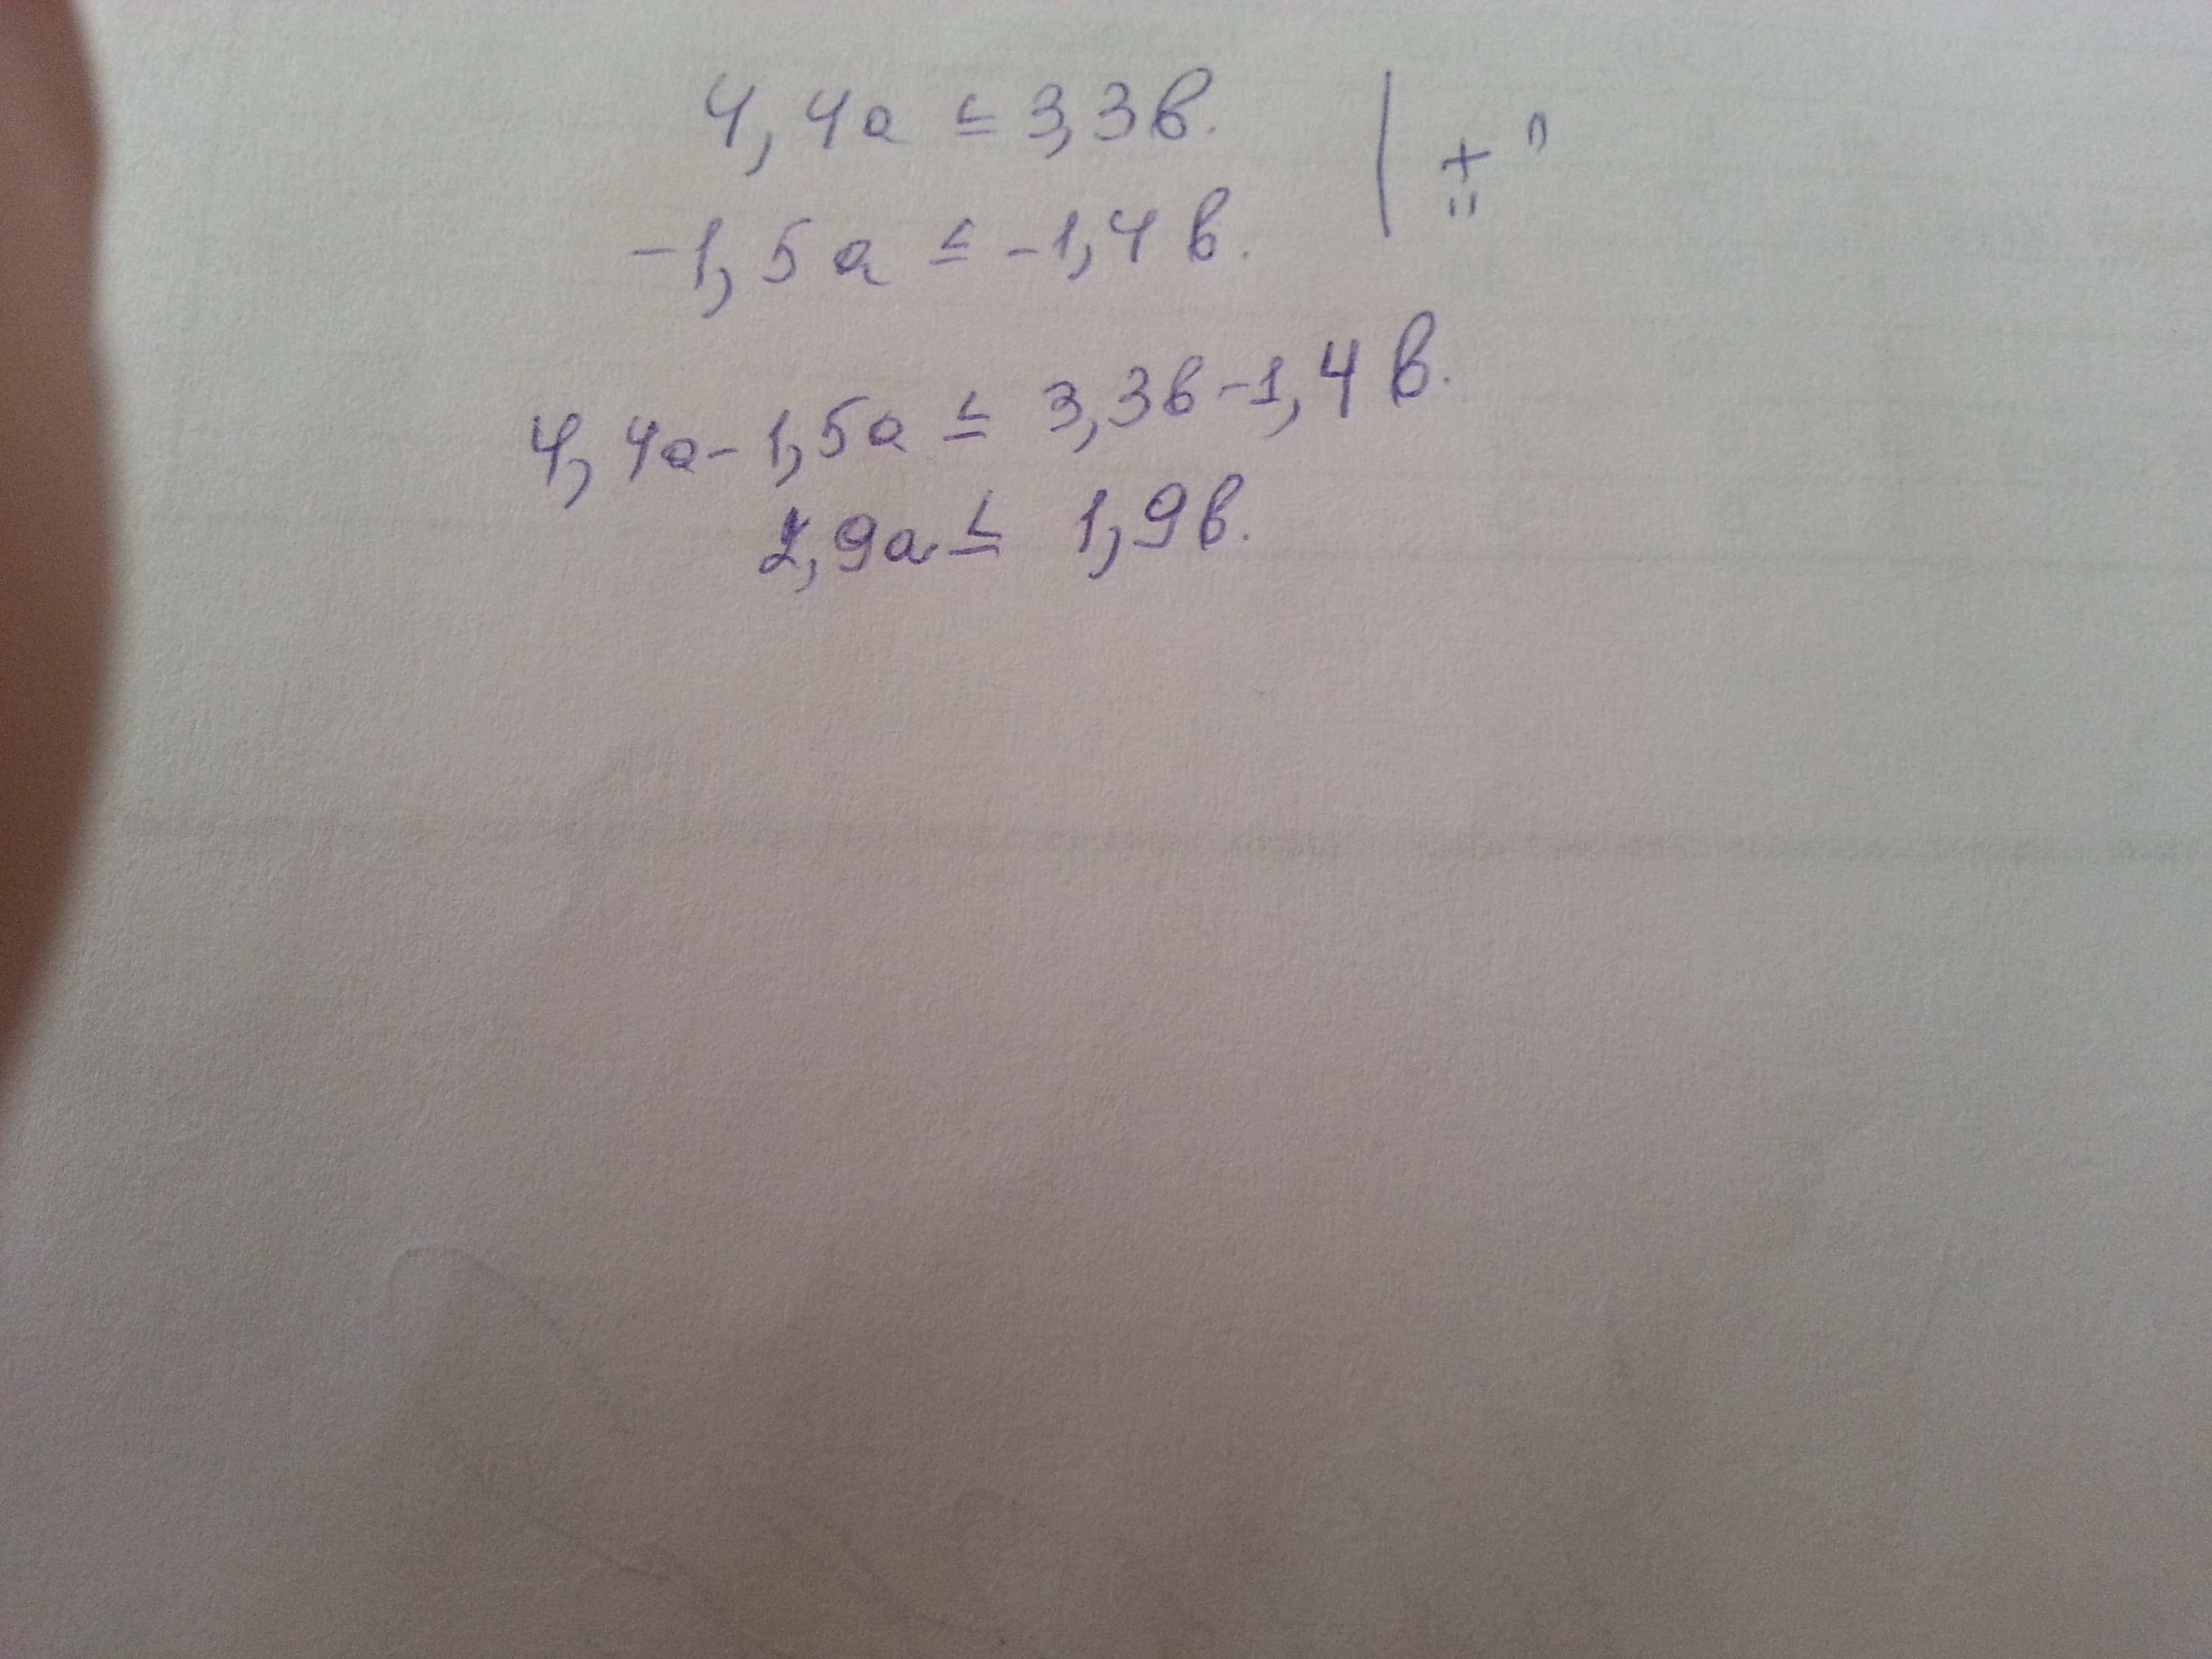 4,4а ≤ 3,3в. | "+"
-1,5а ≤ -1,4в.
4,4а-1,5а ≤ 3,3в-1,4в.
2,9а ≤ 1,9в.